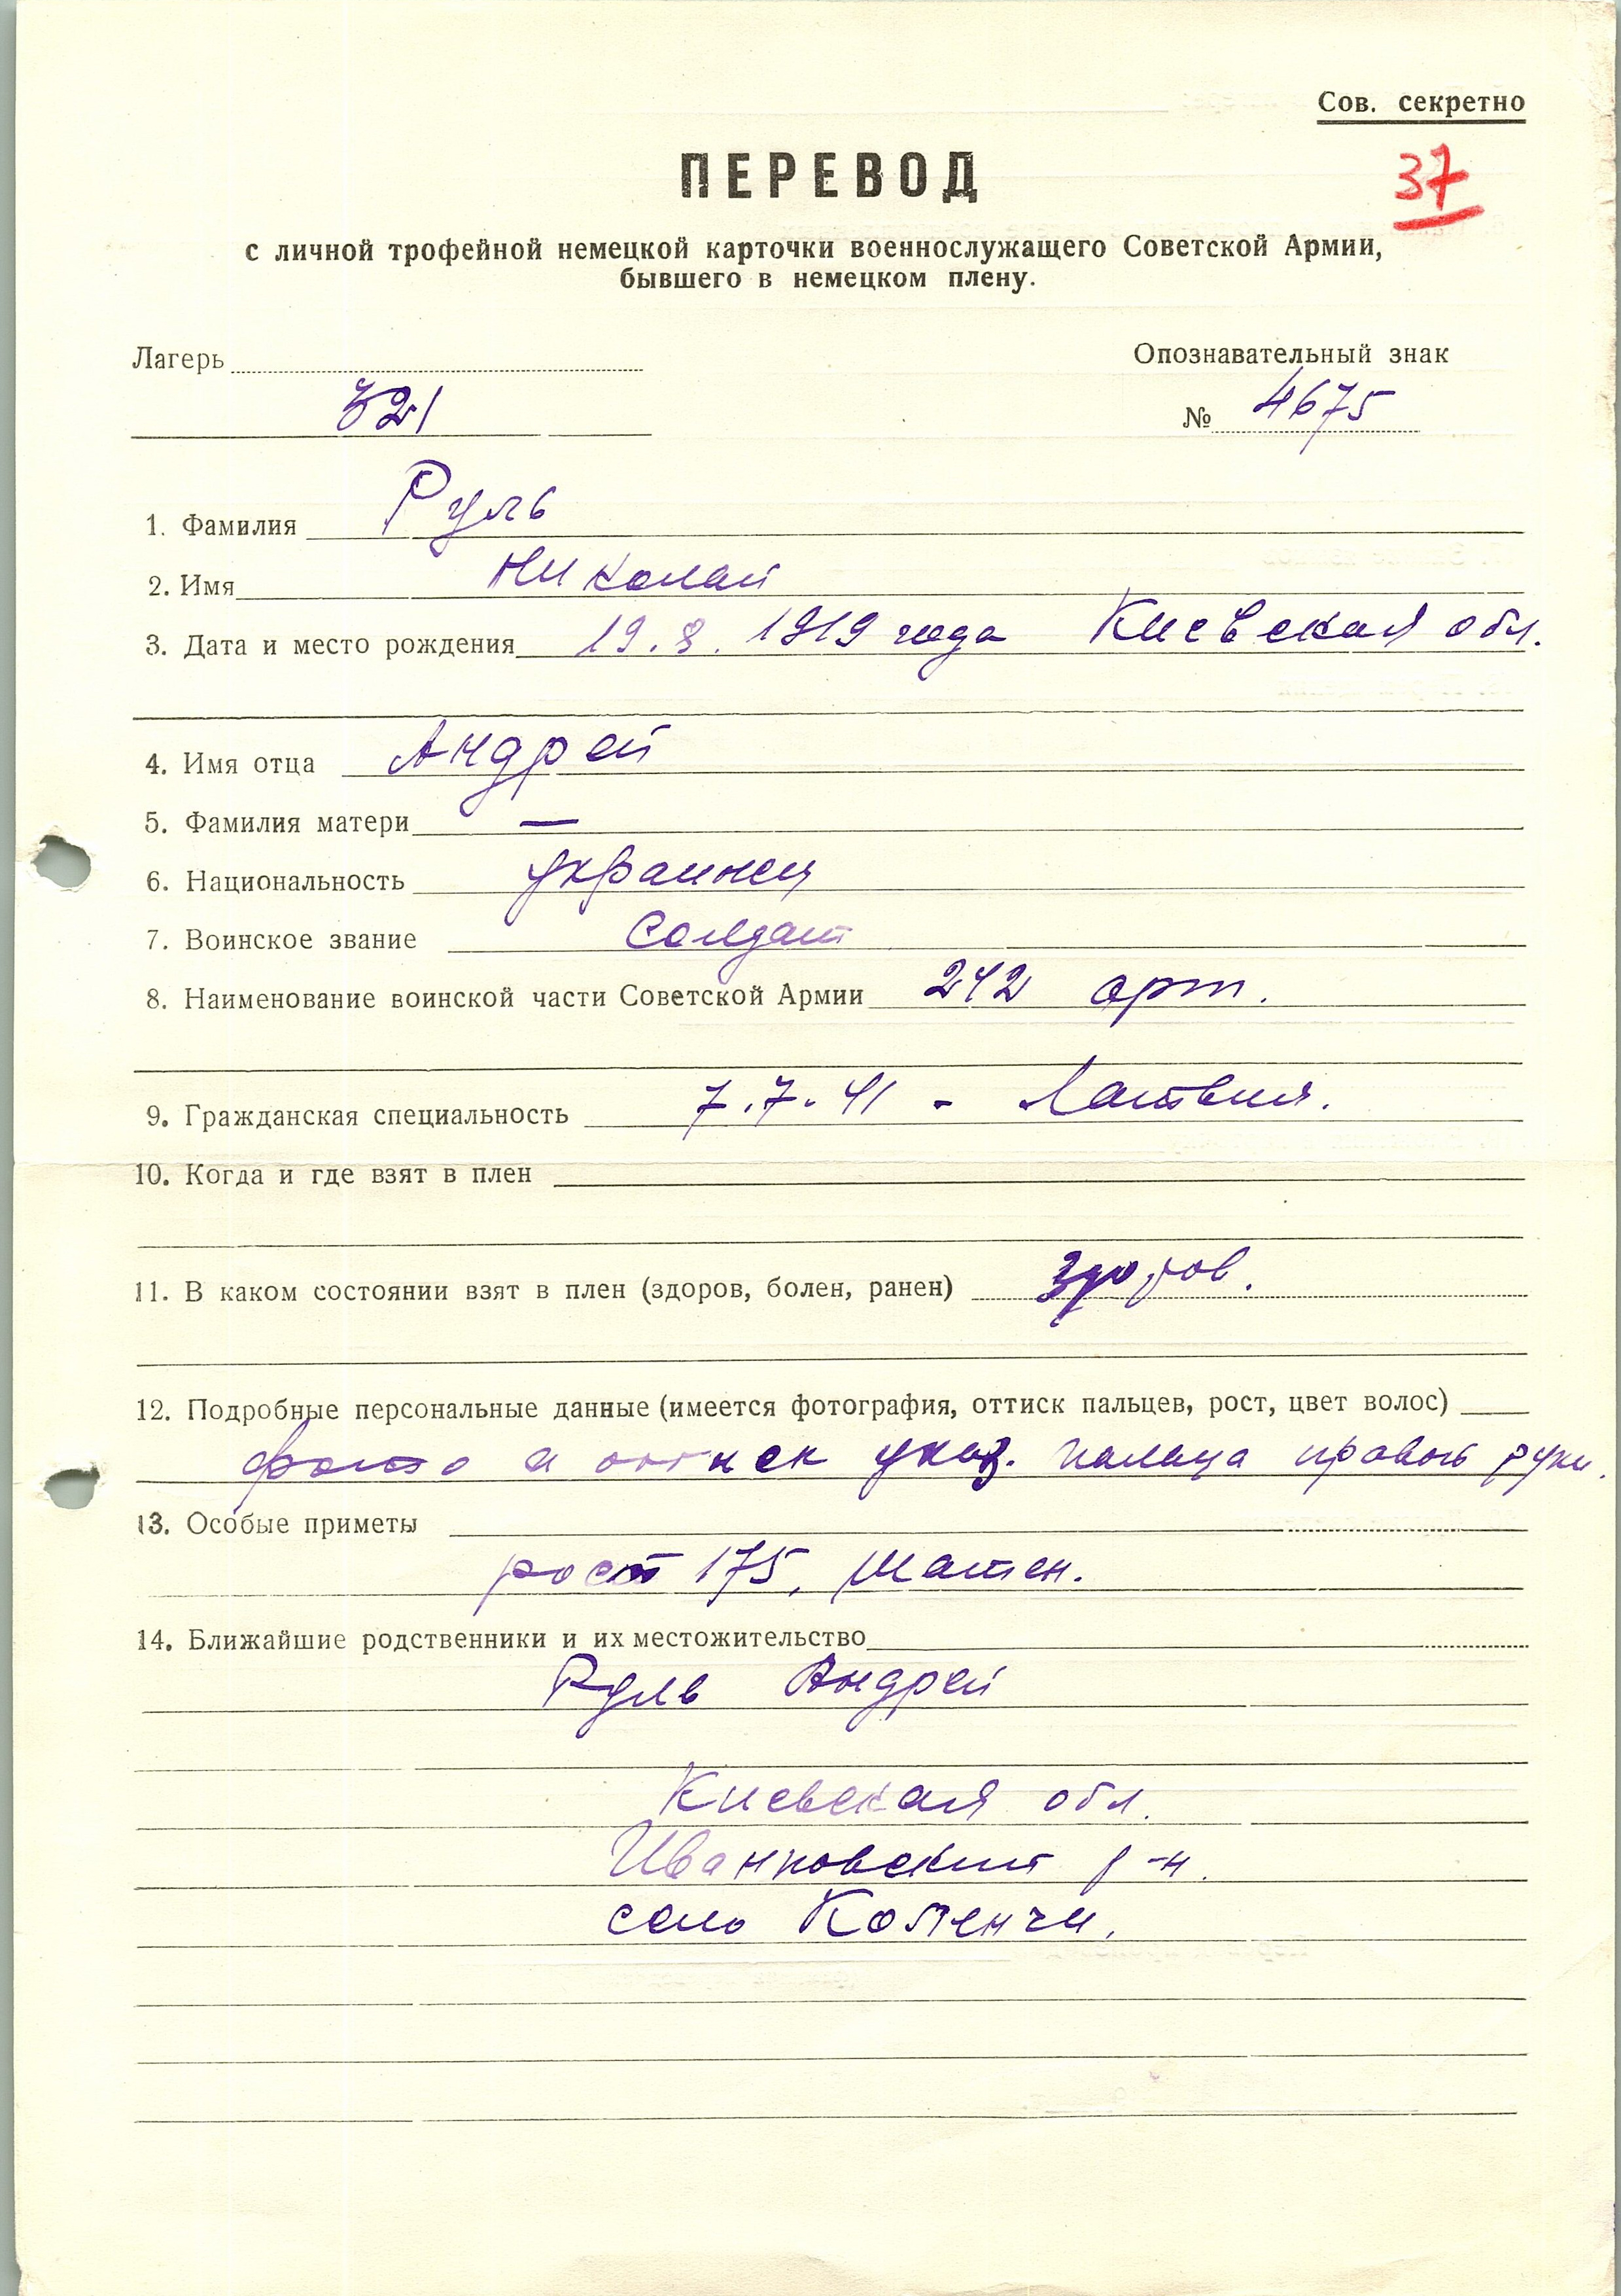 Сов. секретно
37
ПЕРЕВОД
с личной трофейной немецкой карточки военнослужащего Советской Армии,
бывшего в немецком плену.
Лагерь
Опознавательный знак
321
№ 4675
1. Фамилия Руль
2. Имя Николай
3. Дата и место рождения 19.8.1919 года Киевская обл.
4. Имя отца Андрей
5. Фамилия матери —
6. Национальность украинец
7. Воинское звание Солдат
8. Наименование воинской части Советской Армии 242 арт.
9. Гражданская специальность 7.7.41 - Латвия.
10. Когда и где взят в плен
11. В каком состоянии взят в плен (здоров, болен, ранен) Здоров.
12. Подробные персональные данные (имеется фотография, оттиск пальцев, рост, цвет волос)
фото и оттиск указ. пальца правой руки.
13. Особые приметы
рост 175, шатен.
14. Ближайшие родственники и их местожительство
Руль Андрей
Киевская обл.
Иванковский р-н.
село